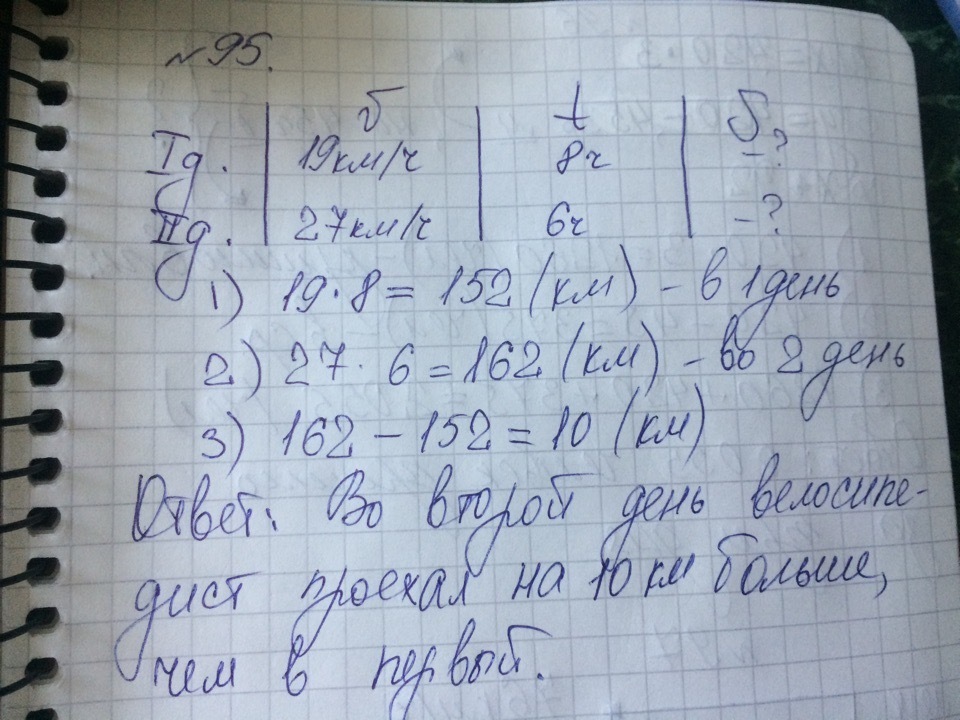 №95.
υ t S
I д. 19км/ч 8ч -?
II д. 27км/ч 6ч -?
1) 19·8 = 152 (км) - в 1 день
2) 27·6 = 162 (км) - во 2 день
3) 162 - 152 = 10 (км)
Ответ: Во второй день велосипе-
дист проехал на 10 км больше,
чем в первый.